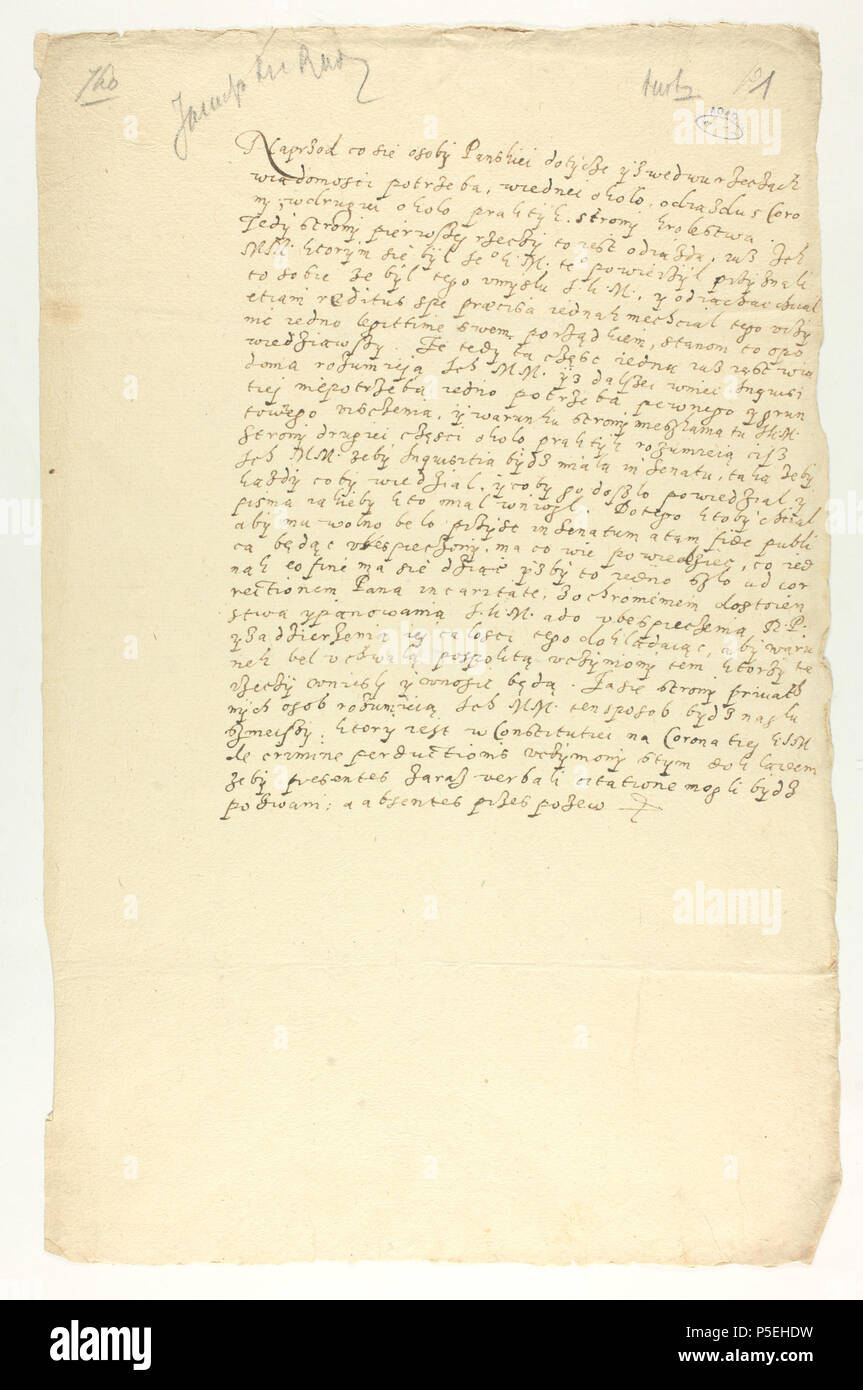 760
91
Naprzod co sie osoby Panskiei dotycze yz wedwu rzeczach
wiadomosci potrzeba, wiednei okolo, odiazdu s Coro
ny, wdrugiei okolo praktyk. strony krolestwa
Tedy strony pierwszej rzeczy to iest odiazdu, iusz Ich
MM. ktorym sie był Je° K. M. te° powierzył przyznali
to sobie ze był tego vmysłu J. K. M. y odiachac chciał
etiam reditus spe praecisa iednak niechciał tego vczy
nic iedno legittime swem porządkiem, stanom to opo
wiedziawszy. Ze tedy ta część iedna iusz iest wia
doma rozumieją Ich MM. yz dalszei wniei Inquisi
tiej niepotrzeba iedno potrzeba pewnego y grun
townego visczenia, y warunku strony mieszkania tu J.K.M.
Strony drugiei części okolo praktyk rozumieią ciż
Ich MM. zeby Inquisitia bydz miala in Senatu, taka zeby
kazdy coby wiedzial, y coby go doszlo powiedzial y
pisma iakieby kto mial wniosl. Do tego ktoby chcial
aby mu wolno belo przysc in Senatum a tam fide publi
ca będąc vbespieczony, ma co wie powiedziec, co ied
nak eo fine ma sie dziac yzby to iedno szlo ad cor
rectionem Pana in caritate, zochronieniem dostoien
stwa y panowania J.K.M. a do vbespieczenia R.P.
y zadzierzenia iej calosci tego dokladaiąc, aby waru
nek bel vchwalą pospolitą vczyniony tem ktorzy te
rzeczy wniesly y wnosic będą. Zasie strony privath
nych osob rozumieią Ich MM. ten sposob bydz nasłu
szneiszy, ktory iest w Constitutiei na Coronatiej K.J.M.
de crimine perductionis vczyniony s tym dokladem
zeby presentes zaraz verbali citatione mogli bydz
pozwani: a absentes przes pozew
alamy
alamy
Image ID: P5EHDW
www.alamy.com